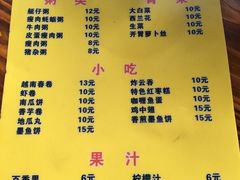 粥类
青菜
艇仔粥 12元
瘦肉蚝蛎粥 10元
牛肉粥 10元
皮蛋瘦肉粥 10元
瘦肉粥 8元
猪杂粥 8元
大白菜 10元
西兰花 10元
生菜 10元
开胃萝卜丝 10元
小吃
越南春卷 13元
虾卷 10元
南瓜饼 10元
香芋卷 10元
地瓜丸 10元
墨鱼饼 15元
炸云吞 10元
特色红枣糕 10元
咖喱鱼蛋 10元
鸡中翅 15元
香煎墨鱼饼 15元
果汁
百香果 6元
柠檬汁 6元